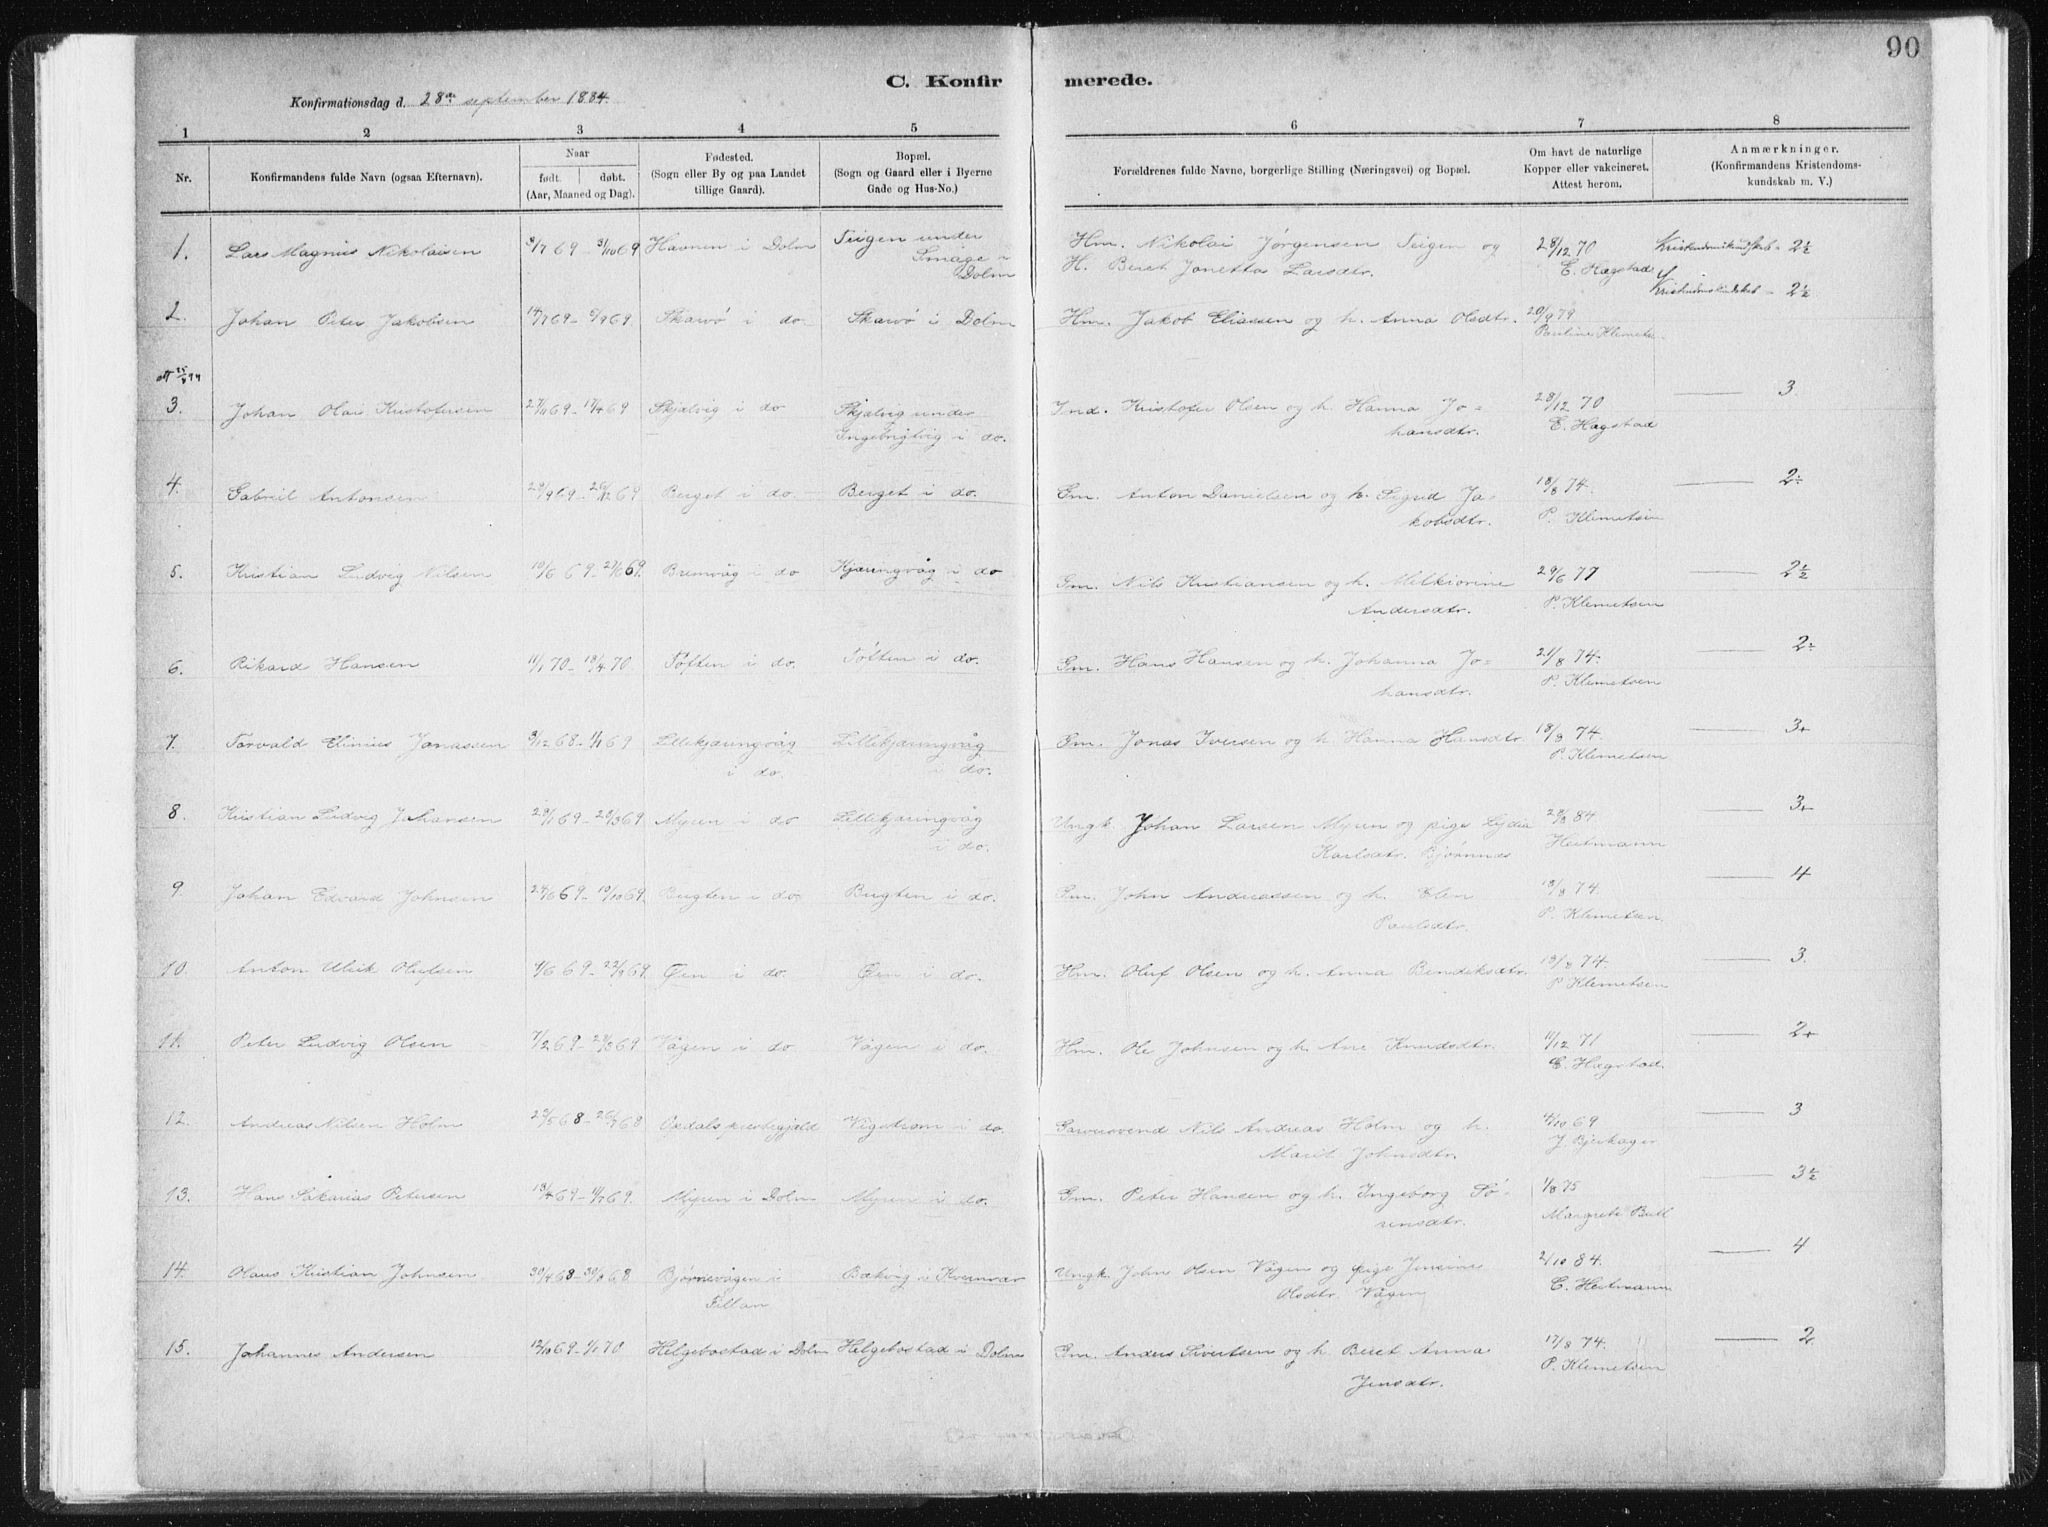 90
C. Konfirmerede.
Konfirmationsdag d. 28de september 1884.
1 2 3 4 5 6 7 8
Nr.
Konfirmandens fulde Navn (ogsaa Efternavn).
Naar
født. døbt.
(Aar, Maaned og Dag).
Fødested.
(Sogn eller By og paa Landet
tillige Gaard).
Bopæl.
(Sogn og Gaard eller i Byerne
Gade og Hus-No.)
Forældrenes fulde Navne, borgerlige Stilling (Næringsvei) og Bopæl.
Om havt de naturlige
Kopper eller vakcineret.
Attest herom.
Anmærkninger.
(Konfirmandens Kristendoms-
kundskab m. V.)
1. Lars Magnus Nikolaisen 3/7 69 - 3/10 69 Havnen i Dolm Teigen under
Smage i
Dolm
Hm. Nikolai Jørgensen Teigen og
H. Beret Jonetta Larsdtr.
28/12 70
E. Hagstad
Kristendomskundskab - 2½
2. Johan Peter Jakobsen 14/7 69 - 5/9 69 Skarvø i do. Skarvø i Dolm
Hm. Jakob Eliassen og h. Anna Olsdtr.
20/9 79
Pauline Klemetsen
Kristendomskundskab - 2½
att 25/8 94
3. Johan Olai Kristofersen 27/1 69 - 17/4 69 Skjølvig i do Skjølvig under
Ingebrigtvig i do.
Ind. Kristofer Olsen og h. Hanna Jo-
hansdtr.
28/12 70
E. Hagstad
3
4. Gabriel Antonsen 29/9 69 - 26/12 69 Berget i do. Berget i do.
Gm. Anton Danielsen og h. Sigrid Ja-
kobsdtr.
18/8 74.
P. Klemetsen
2÷
5. Kristian Ludvig Nilsen 10/6 69 - 27/6 69. Bremvåg i do Kjærringvåg i do
Gm. Nils Kristiansen og h. Melkiorine
Andersdtr.
29/6 77
P. Klemetsen
2½
6. Rikard Hansen 11/1 70 - 18/4 70 Tøften i do. Tøften i do.
Gm. Hans Hansen og h. Johanna Jo-
hansdtr.
21/8 74.
P. Klemetsen
2÷
7. Torvald Elinius Jonassen 3/12 68 - 1/1 69 Lillekjærringvåg
i do.
Lillekjærringvåg
i do.
Gm. Jonas Iversen og h. Hanna Hansdtr.
18/8 74.
P. Klemetsen
3+
8 Kristian Ludvig Johansen 29/1 69 - 28/3 69 Myren i do Lillekjærringvåg
i do.
Ungk. Johan Larsen Myren og pige Lydia
Karlsdtr. Bjørnnes
29/8 84
Heitmann
3+
9 Johan Edvard Johnsen 24/6 69 - 10/10 69. Bugten i do. Bugten i do.
Gm. John Andreassen og h. Elen
Paulsdtr.
18/8 74.
P. Klemetsen.
4
10. Anton Ulrik Olufsen 4/6 69 - 22/8 69. Øen i do. Øen i do.
Hm. Oluf Olsen og h. Anna Bendiksdtr.
18/8 74.
P Klemetsen
3.
11. Peter Ludvig Olsen 7/2 69 - 28/3 69 Vågen i do Vågen i do.
Hm. Ole Johnsen og h. Ane Knudsdtr.
11/12 71
E. Hagstad.
2+
12. Andreas Nilsen Holm 29/5 68 - 26/7 68 Opdals prestegjeld Vigstrøm i do.
Garversvend Nils Andreas Holm og h.
Marit Johnsdtr.
4/10 69
J. Bjerkager
3
13. Hans Sakarias Petersen 13/4 69 - 1/7 69. Myren i Dolm Myren i do.
Gm. Peter Hansen og h. Ingeborg Sø-
rensdtr.
1/8 75
Margrete Bull
3½
14. Olaus Kristian Johnsen 30/4 68 - 30/8 68 Bjørnevågen i
Fillan
Bækvig i Kvenvær
Ungk. John Olsen Vågen og pige Jensine
Olsdtr. Vågen
2/10 84.
C. Heitmann
4
15. Johannes Andersen 12/10 69 - 1/1 70 Helgebostad i Dolm Helgebostad i Dolm
Gm. Anders Sivertsen og h. Beret Anna
Jensdtr.
17/8 74.
P. Klemetsen
2